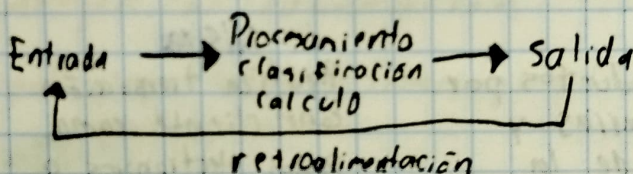 Entrada
Procesamiento
clasificación
calculo
Salida
retroalimentación